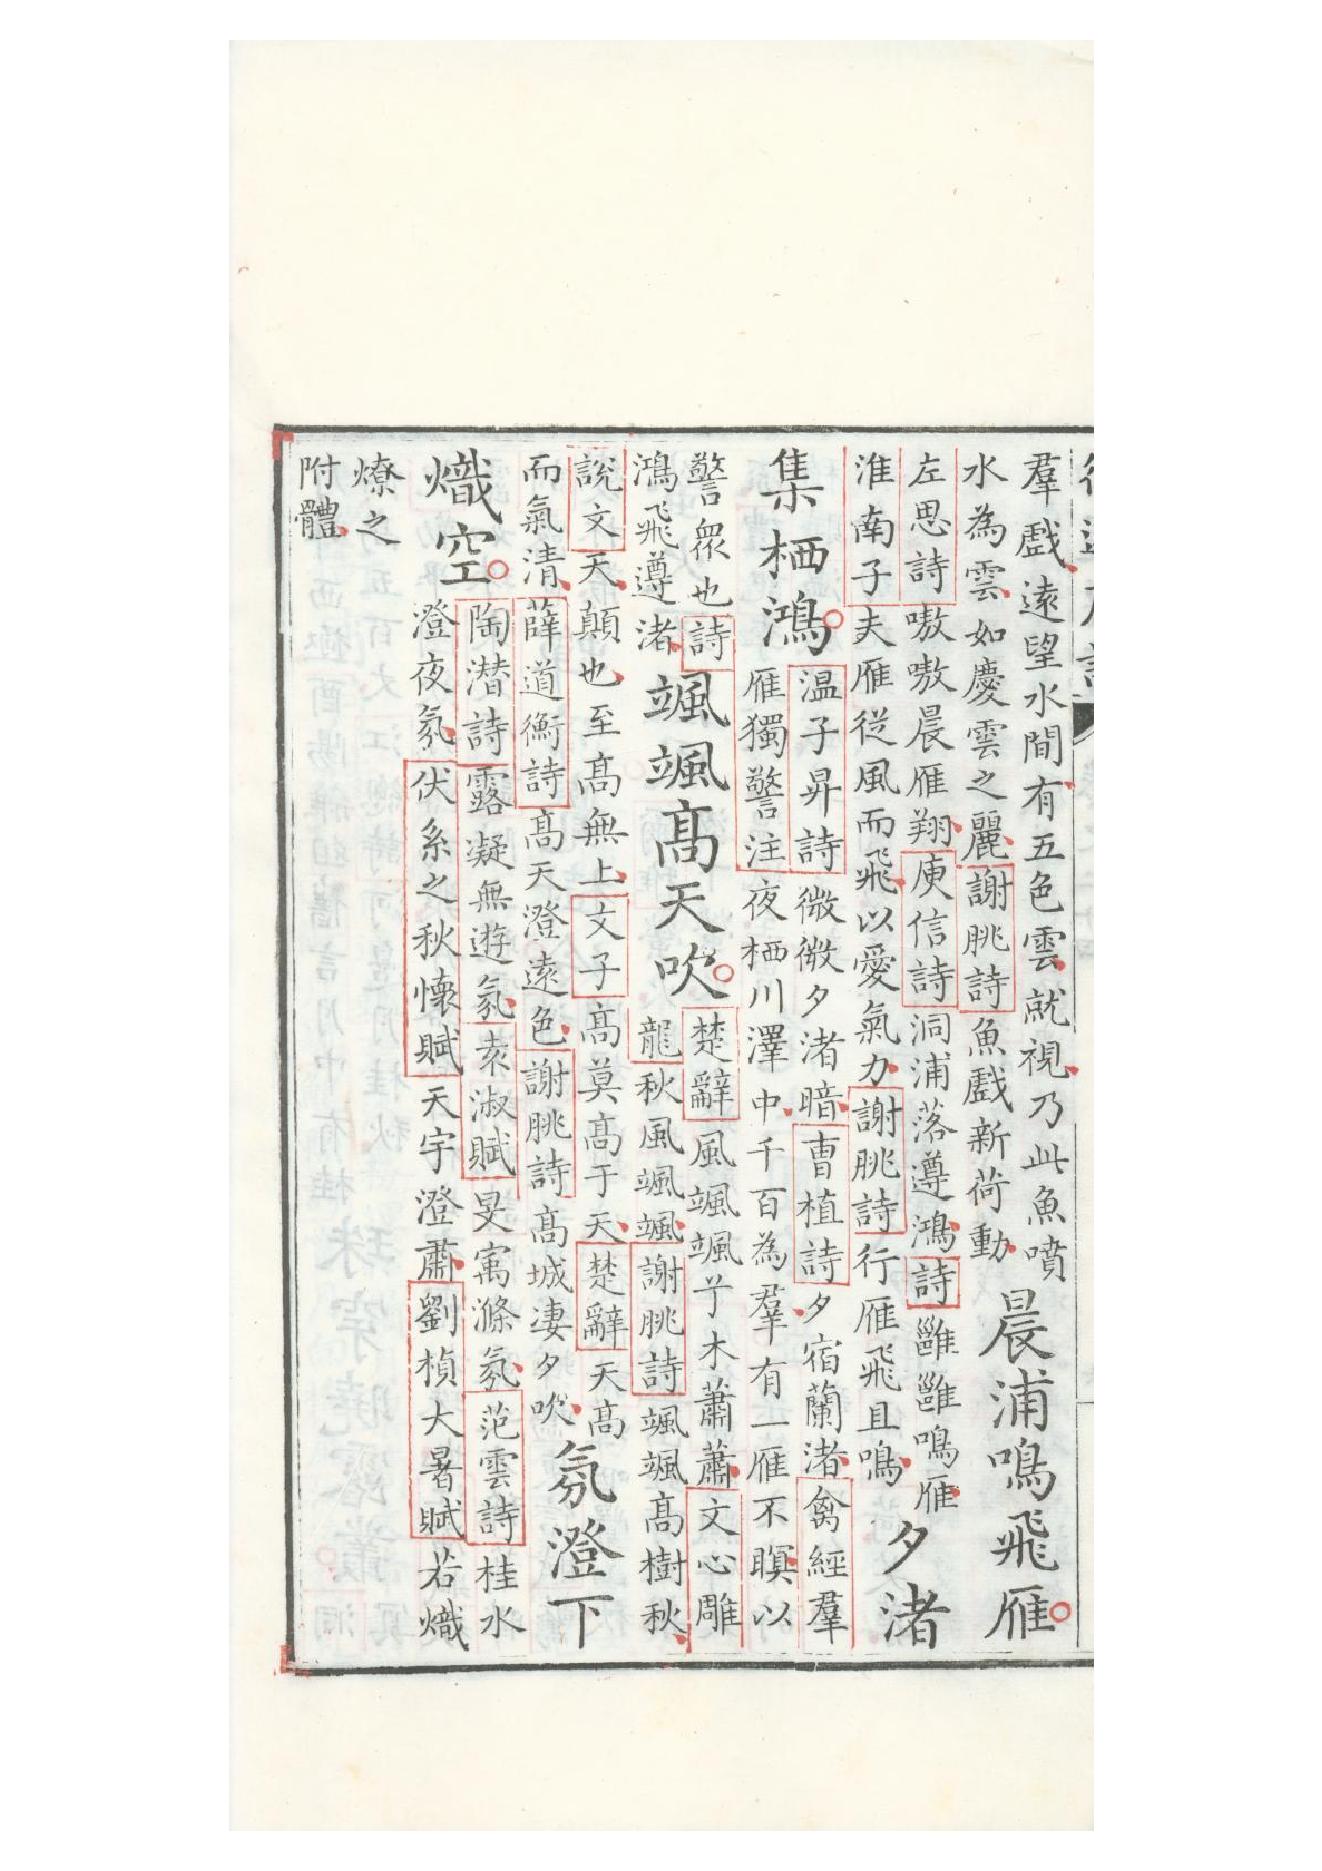 羣戲遠望水間有五色雲就視乃此魚噴
水為雲如慶雲之麗謝朓詩魚戲新荷動
晨浦鳴飛雁
左思詩嗷嗷晨雁翔庾信詩洞浦落遵鴻詩雝雝鳴雁
淮南子夫雁從風而飛以愛氣力謝朓詩行雁飛且鳴
夕渚
集栖鴻
温子昇詩微微夕渚暗曹植詩夕宿蘭渚禽經羣
雁獨警注夜栖川澤中千百為羣有一雁不瞑以
警衆也詩
鴻飛遵渚
颯颯高天吹
楚辭風颯颯兮木蕭蕭文心雕
龍秋風颯颯謝朓詩颯颯高樹秋
說文天顛也至高無上文子高莫高于天楚辭天高
而氣清薛道衡詩高天澄遠色謝朓詩高城凄夕吹
氛澄下
熾空
陶潜詩露凝無遊氛袁淑賦旻寓滌氛范雲詩桂水
澄夜氛伏系之秋懷賦天宇澄肅劉楨大暑賦若熾
燎之
附體